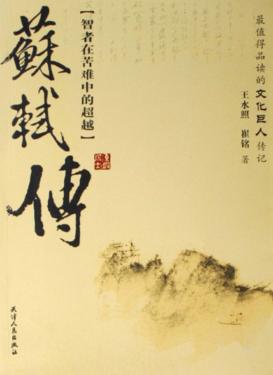 蘇軾傳
【智者在苦难中的超越】
最值得品读的文化巨人传记
王水照 崔铭 著
天津人民出版社